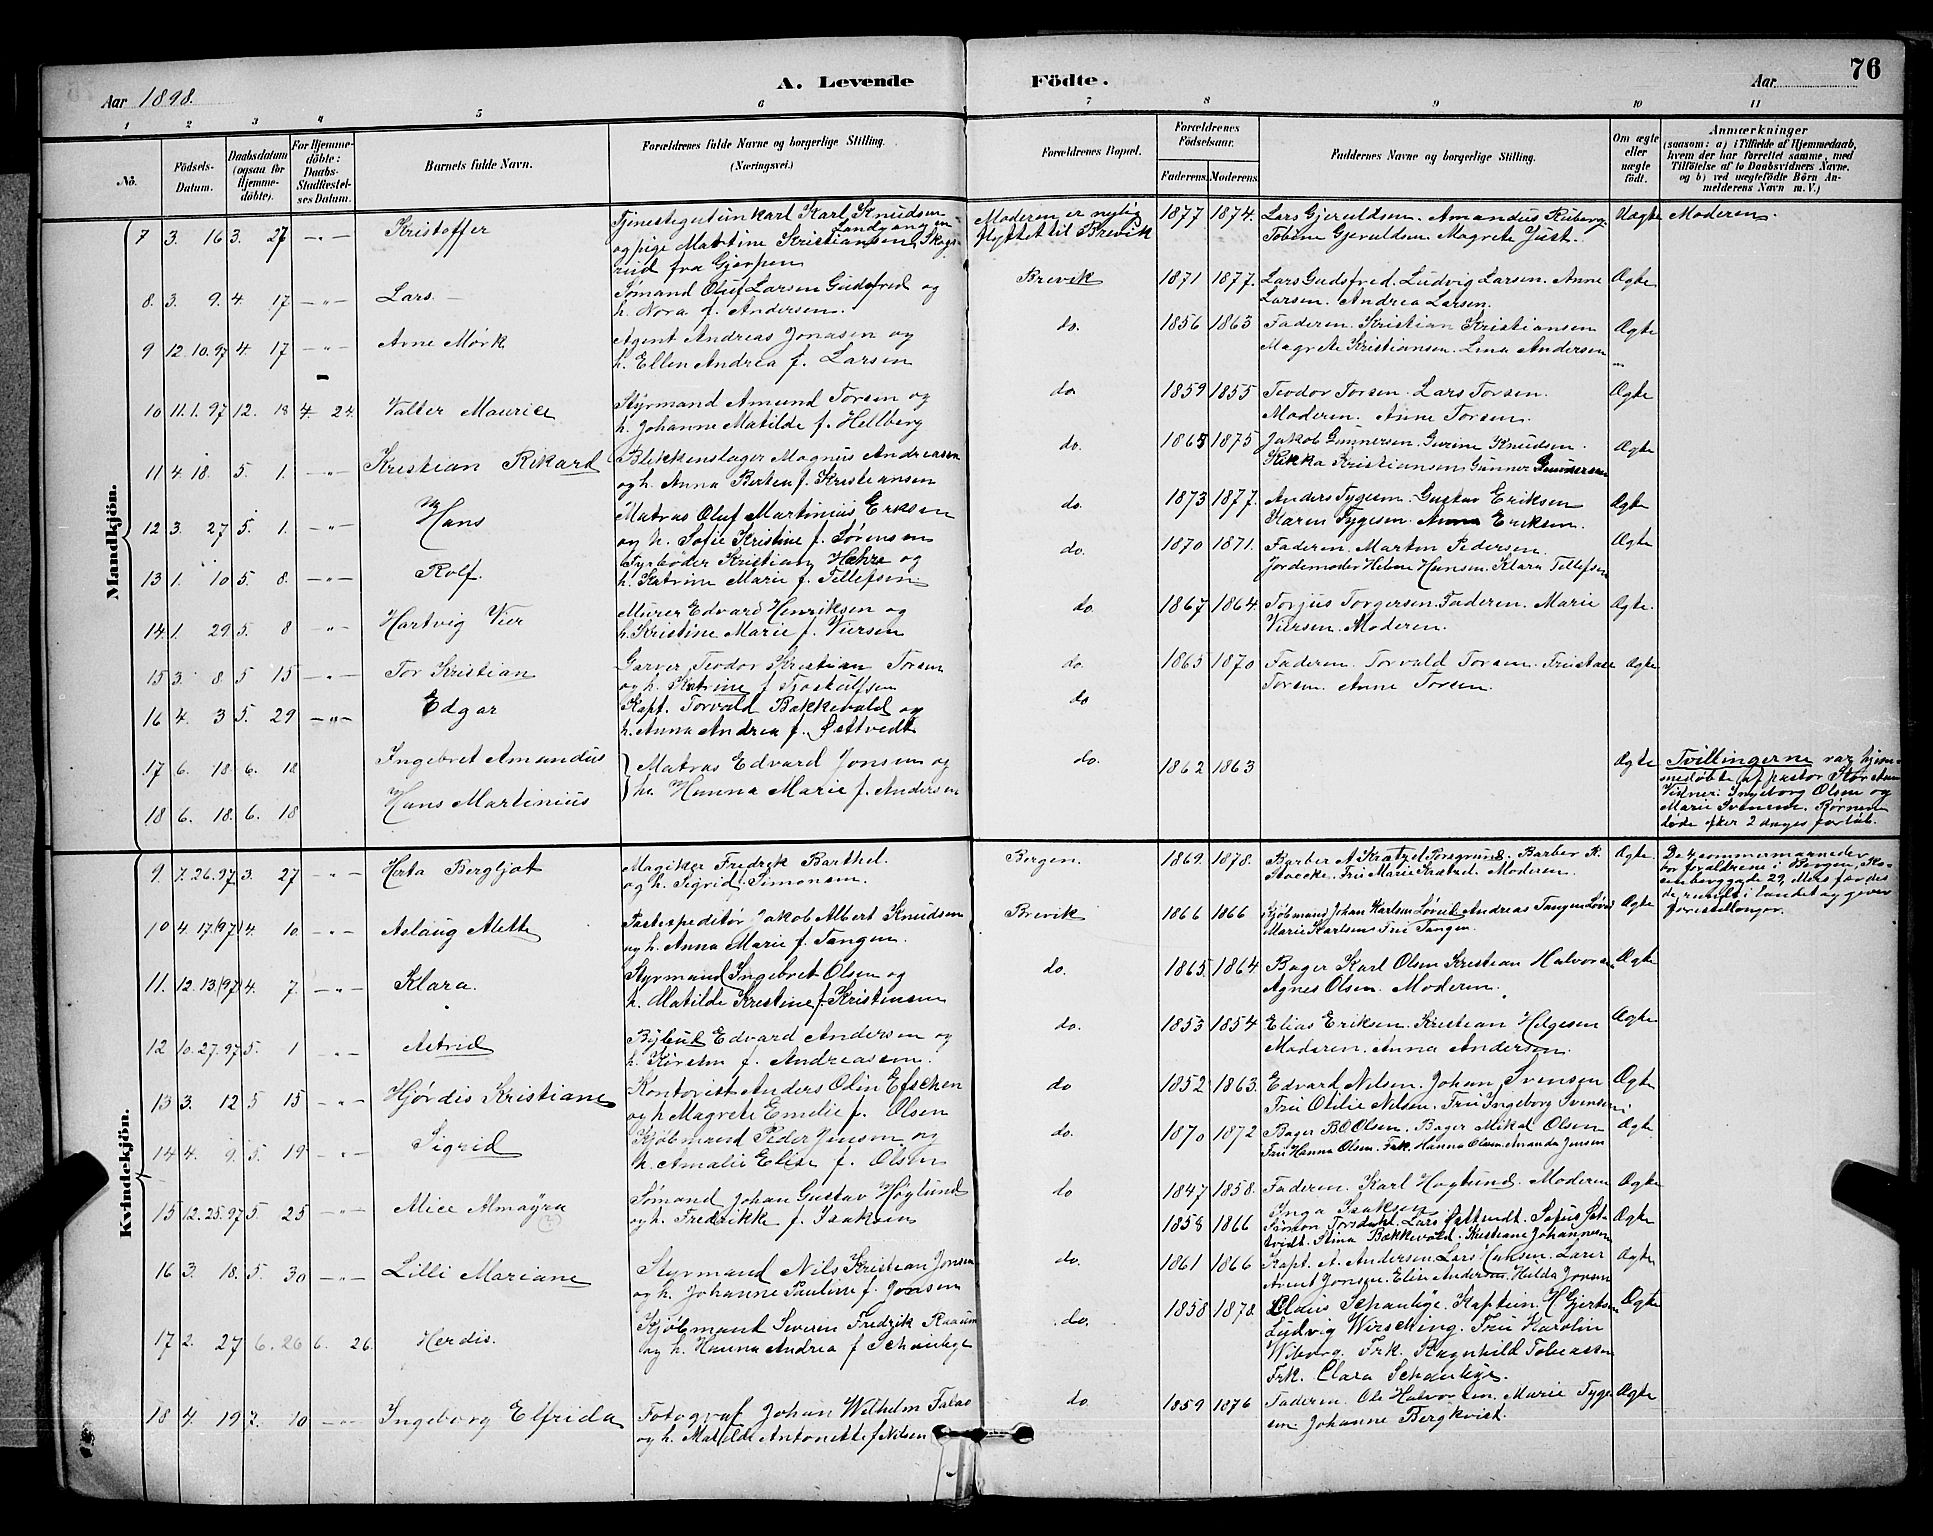 76
Aar 1898.
A. Levende Födte.
Aar
1 2 3 4 5 6 7 8 9 10 11
No.
Födsels-Datum.
Daabsdatum (ogsaa for Hjemmedöbte).
For Hjemmedöbte: Daabs-Stadfæstelses Datum.
Barnets fulde Navn.
Forældrenes fulde Navne og borgerlige Stilling.
(Næringsvei.)
Forældrenes Bopæl.
Forældrenes Födselsaar.
Faderens. Moderens.
Faddernes Navne og borgerlige Stilling.
Om ægte eller uægte födt.
Anmærkninger
(saasom: a) i Tilfælde af Hjemmedaab,
hvem der har forrettet samme, med
Tilföielse af to Daabsvidners Navne,
og b) ved uægtefödte Börn Anmelderens Navn m. V.)
Mandkjön.
7 3. 16 3. 27 -"- Kristoffer
Tjenestegut unkarl Karl Knudsen Landgangen
og pige Martine Kristiansen, Skogsrud fra Gjerpen
Moderen er nylig flyttet til Brevik
1877 1874. Lars Gjeruldsen. Amandus Ruberg.
Tobine Gjeruldsen Magrete Just.
Uægte Moderen.
8. 3. 9. 4. 17 -"- Lars
Sømand Oluf Larsen Gudsfred og
h. Nora f. Andersen.
Brevik 1871 1877. Lars Gudsfred. Ludvig Larsen. Anne
Larsen. Andrea Larsen.
Ægte
9 12.10.97 4. 17 -"- Arne Mørk
Agent Andreas Jonasen og
h. Ellen Andrea f. Larsen
do. 1856 1863 Faderen. Kristian Kristiansen
Magrete Kristiansen. Lina Andersen
Ægte
10 11.1.97 12. 18 4. 24. Valter Maurice
Styrmand Amund Torsen og
h. Johanne Matilde f. Hellberg
do 1859 1855 Teodor Torsen. Lars Torsen.
Moderen. Anne Torsen.
Ægte
11 4. 18. 5. 1. -"- Kristian Rikard
Blikkenslager Magnus Andreasen
og h. Anna Bertea f. Kristiansen
do. 1865 1875 Jakob Gunnersen. Gurine Knudsen.
Rikka Kristiansen Gunner Gunnersen
Ægte
12 3. 27 5. 1. -"- Hans
Matros Oluf Martinius Eriksen
og h. Sofie Kristine f. Sørensen
do. 1873 1877. Anders Tygesen. Gustav Eriksen
Karen Tygesen. Anna Eriksen.
Ægte
13 1. 10 5. 8. -"- Rolf.
Fyrbøder Kristian Hehre og
h. Katrine Marie f. Tellefsen.
do. 1870 1871. Faderen. Marton Pedersen.
Jordemoder Helene Hansen. Klara Tellefsen
Ægte
14. 1. 29 5. 8 -"- Hartvig Vier
Murer Edvard Henriksen og
h. Kristine Marie f. Viersen
do. 1867 1864. Torjus Torgersen. Faderen. Marie
Viersen. Moderen.
Ægte.
15 3. 8. 5 15 -"- Tor Kristian
Garver Teodor Kristian Torsen
og h. Katrine f. Tjostulfsen
do. 1865 1870 Faderen. Torvald Torsen.
Torsen. Anne Torsen.
Ægte
16 4. 3 5. 29 -"- Edgar
Kapt. Torvald Bakkevold og
h. Anna Andrea f. Østtvedt
do
17 6. 18. 6. 18 Ingebret Amundus
18 6. 18. 6. 18 Hans Martinius
Matros Edvard Jonsen og
h. Hanna Marie f. Andersen
do. 1862 1863
Ægte Tvillingerne var hjemmedøbte af pastor Storm
Vidner: Ingeborg Olsen og
Marie Svensen. Børnene
døde efter 2 dages forløb.
Kvindekjön.
9. 7.26.97 3. 27 -"- Herta Bergljot
Magiker Fredrik Barthel
og h. Sigrid f. Simonsen.
Bergen. 1869. 1878. Barber A Kratzel Porsgrund. Barber R.
Fru Marie Kratzel. Moderen.
Ægte De 4 sommermaaneder
bor forældrene i Bergen,
29, Ellers færdes
de rundt i landet og giver
forestillinger.
10 4.17.(97) 4. 10. -"- Aslaug Alette
Postexpeditør Jakob Albert Knudsen
og h. Anna Marie f. Tangen.
Brevik 1866 1866 Kjøbmand Johan Karlsen Løvik Andreas Tangen
Marie Karlsen Fru Tangen.
Ægte
11. 12.13(97) 4. 7. -"- Klara.
Styrmand Ingebret Olsen og
h. Matilde Kristine f. Kristensen
do. 1865. 1864 Bager Karl Olsen Kristian Halvorsen
Agnes Olsen. Moderen.
Ægte
12 10.27.97 5. 1 -"- Astrid
Bybud Edvard Andersen og
h. Kirsten f. Andreassen.
do. 1853 1854 Elias Eriksen. Kristian Helgesen
Moderen. Anna Andersen.
Ægte
13 3. 12 5 15 -"- Hjørdis Kristiane
Kontorist Anders Odin Efschen
og h. Magrete Emelie f. Olsen
do 1852 1863. Edvard Nilsen. Johan Svensen
Fru Otilie Nilsen. Fru Ingeborg Svensen.
Ægte
14 4. 9. 5. 19 -"- Sigrid
Kjøbmand Peder Jensen og
h. Amalie Elise f. Olsen
do. 1870 1872 Bager B.O. Olsen. Bager Mikal Olsen
Fru Hanna Olsen. Frk. Hanna Olsen. Amanda Jensen
Ægte.
15 12.25.97 5. 25 -"- Alice Almayra (?)
Sømand Johan Gustav Høglund
og h. Fredrikke f. Isaksen
do 1847 1858. Faderen. Karl Høglund. Moderen
Inga Isaksen
Ægte
1858 1866 Simon Torsdahl. Lars Østtvedt. Sofus Østtvidt. Stina Bakkevold. Kristiane Johannesen
Ægte
16 3. 18. 5. 30 -"- Lilli Mariane
Styrmand Nils Kristian Jonsen
og h. Johanne Pauline f. Jonsen
do. 1861 1866 Kapt. A. Andersen Lars Hansen. Larer
Arent Jonsen. Elise Andersen Hilda Jonsen
Ægte
17 2. 27 6. 26 6. 26. Herdis.
Kjøbmand Severin Fredrik Raaum
og h. Hanna Andrea f. Schanlyge
do. 1858 1878. Claus Schanlyge. Kaptein H. Gjertsen
Ludvig Wirsching. Fru Karolin
Wiborg. Frk. Ragnhild Tobiassen
Frk. Clara Schanlyge.
Ægte
18 4. 19 7. 10 -"- Ingeborg Elfrida
Fotograf Johan Wilhelm Falao
og h. Matilde Antonette f. Nilsen
do. 1859 1876 Faderen. Ole Halvorsen. Marie Tygesen. Johanne Bergkvist.
Ægte